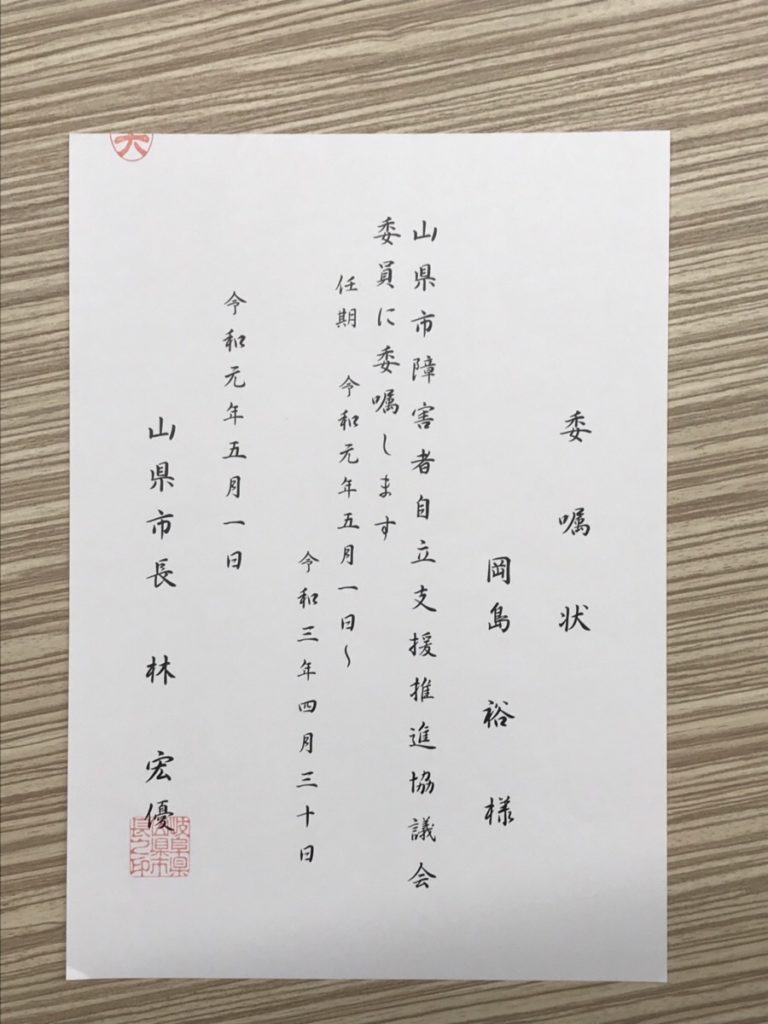 委嘱状
岡島 裕 様
山県市障害者自立支援推進協議会
委員に委嘱します
任期 令和元年五月一日〜
令和三年四月三十日
令和元年五月一日
山県市長 林 宏優
岐阜県
山県市
長之印